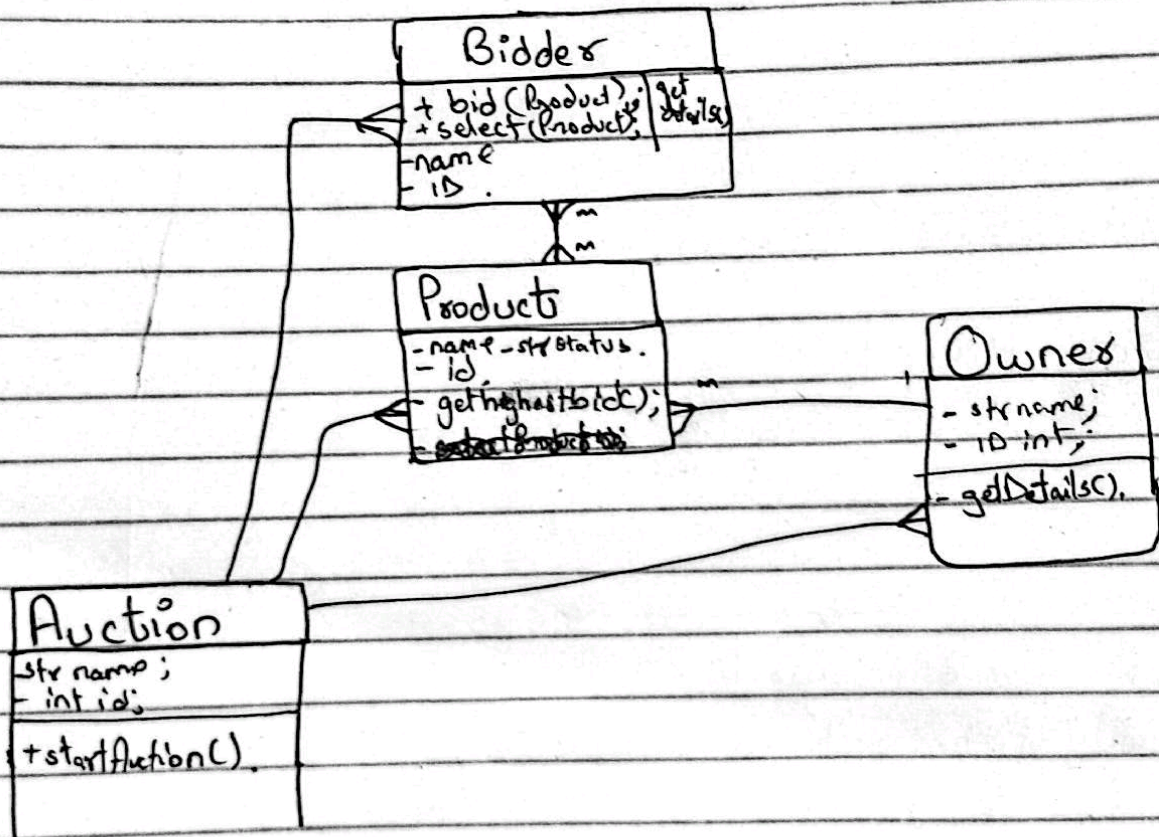 Bidder
+ bid (Product);
+ select (Product);
get
details()
- name
- ID.
m
m
Product
- name - str status.
- id.
- gethighestbid();
m
1
Owner
- str name;
- ID int;
- getDetails().
Auction
str name;
- int id;
+ startAuction().